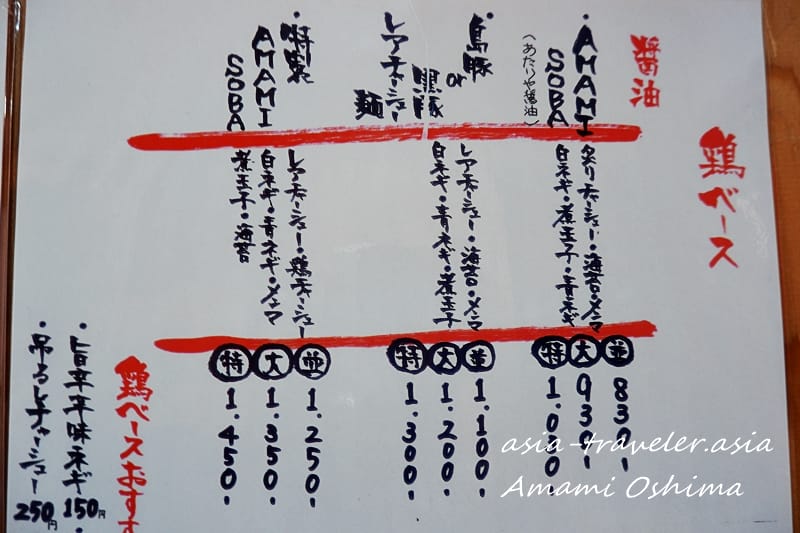 鶏ベース
醤油
・AMAMI
SOBA
(あたりや醤油)
炙りチャーシュー・海苔・メンマ
白ネギ・煮玉子・青ネギ
並 830.-
大 930.-
特 1.000.-
・島豚
or
黒豚
レアチャーシュー
麺
レアチャーシュー・海苔・メンマ
白ネギ・青ネギ・煮玉子
並 1.100.-
大 1.200.-
特 1.300.-
・特製
AMAMI
SOBA
レアチャーシュー・鶏チャーシュー
白ネギ・青ネギ・メンマ
煮玉子・海苔
並 1.250.-
大 1.350.-
特 1.450.-
鶏ベースおすす
・旨辛辛味ネギ 150円
・吊るしチャーシュー 250円
asia-traveler.asia
Amami Oshima